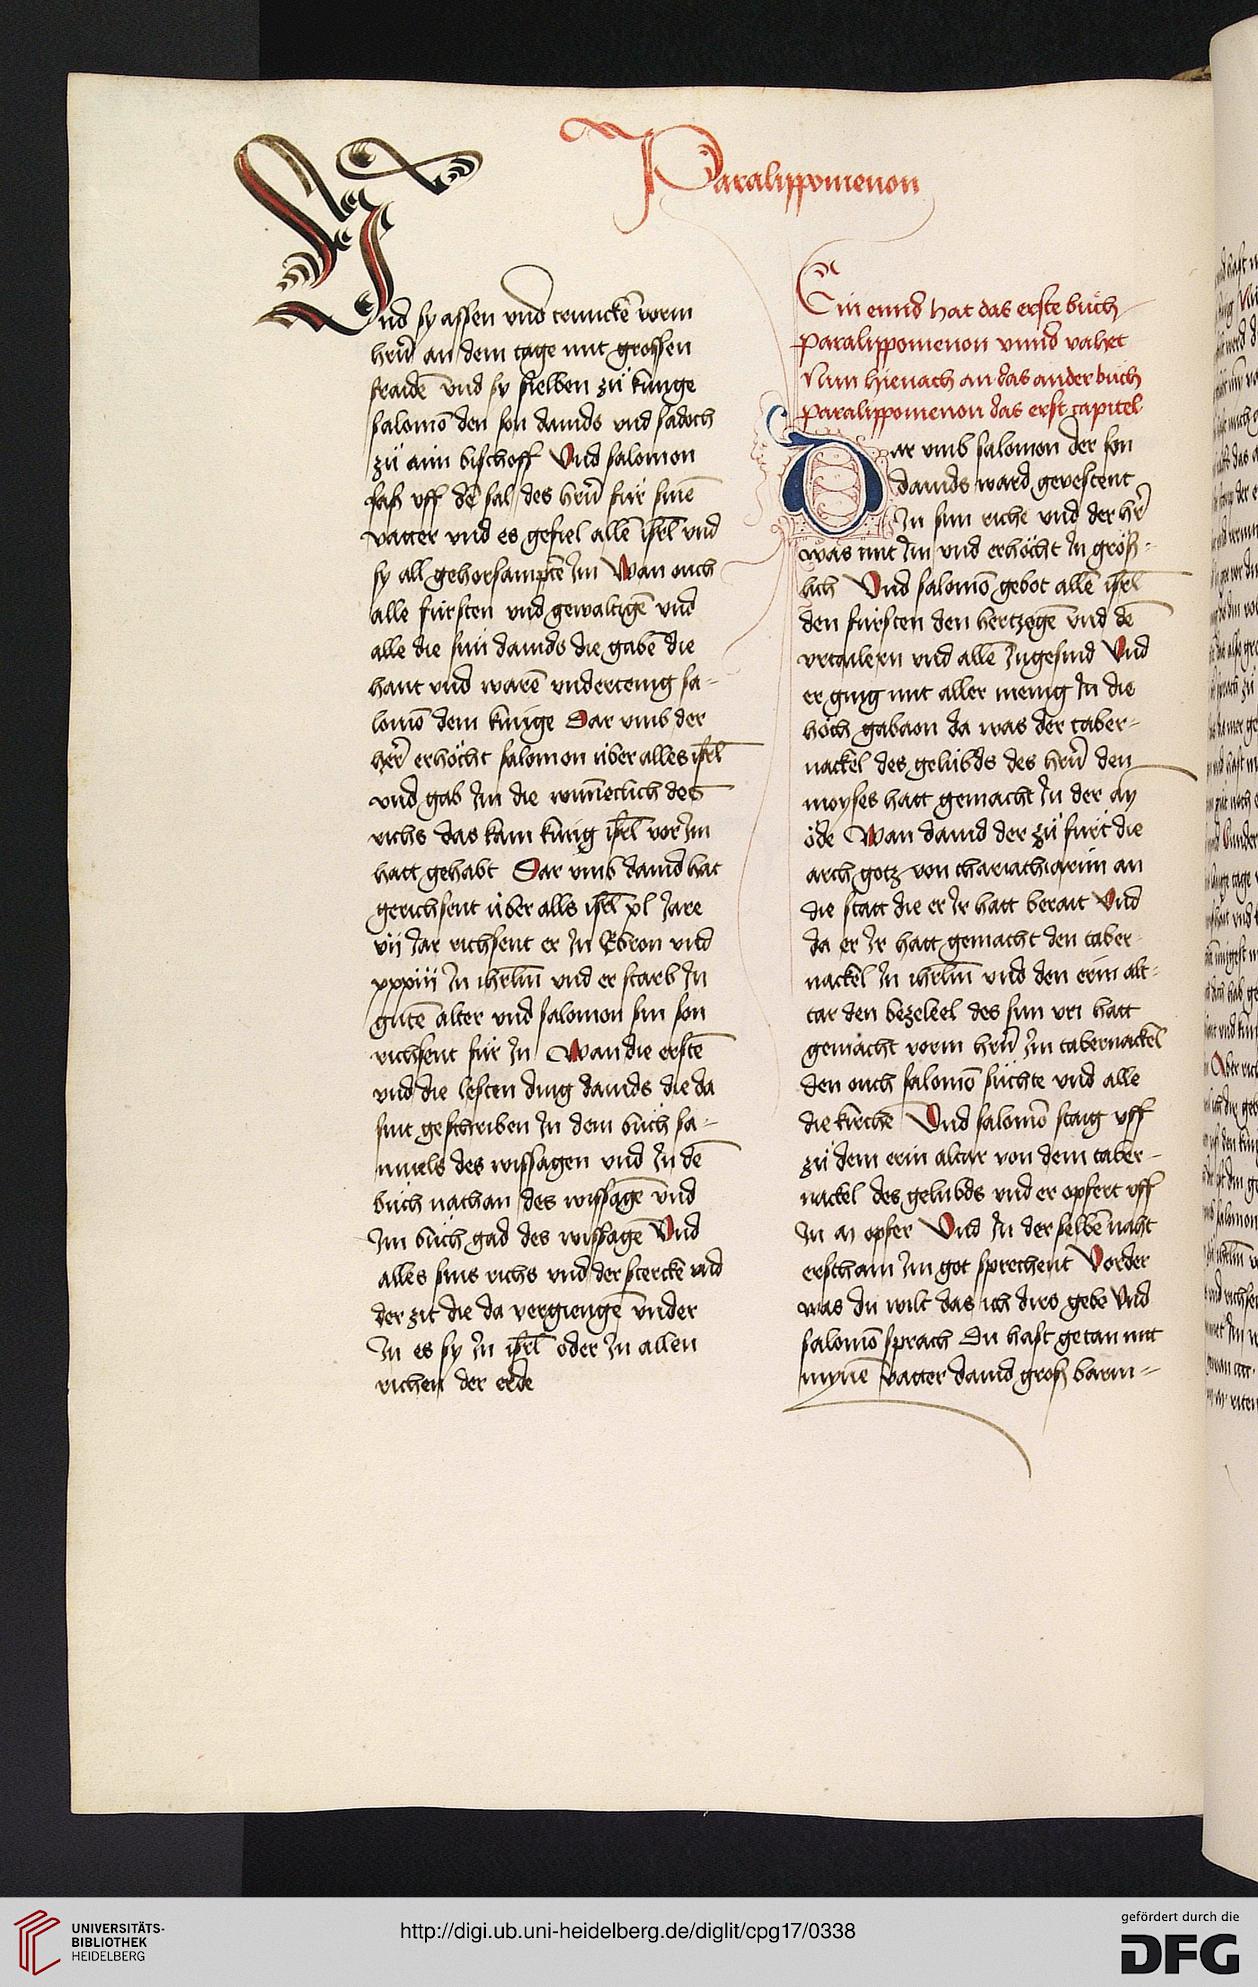 Paralippomenon
Vnd sy assen vnd trunckē vorm
hrn̄ an dem tage mit grossen
fraidē vnd sy fielben zů künge
salomō den son dauids vnd sadoch
zů aim bischoff Vnd salomon
saß vff dē sal des hrn̄ für sinē
vatter vnd es gefiel allē isrl̄ vnd
sy all gehorsamptē Im Wan ouch
alle fürsten vnd gewaltigē vnd
alle die sün dauids die gabē die
hant vnd warē vndertenig sa-
lomō dem künige Dar vmb der
her̄ erhöcht salomon über alles isrl̄
vnd gab Im die wunēclich des
richs das kain künig isrl̄ vor Im
hatt gehabt Dar vmb dauid hat
gerichsent über alls isrl̄ xl Jare
vij Jar richsent er In Ebron vnd
xxxiij In ihrlm̄ vnd er starb In
gutē alter vnd salomon sin son
richsent für In Wan die erstē
vnd die lesten ding dauids die da
sint geschriben In dem bůch sa-
muels des wissagen vnd In dē
bůch nathan des wissagē vnd
Im bůch gad des wissagē Vnd
alles sins richs vnd der sterckē vnd
der zit die da vergiengē vnder
In es sy In isrl̄ oder In allen
richen der erde
Ein ennd hat das erste bůch
paralippomenon vnnd vahet
Nun hienach an das ander bůch
paralippomenon das erst capitel
Dar vmb salomon der son
dauids ward gevestent
In sim riche vnd der hr̄
was mit Im vnd erhöcht In größ-
lich Vnd salomō gebot allē isrl̄
den fürsten den hertzogē vnd dē
vrtailern vnd allē Ingesind Vnd
er ging mit aller menig In die
höch gabaon da was der taber-
nackel des gelübds des hrn̄ den
moyses hatt gemacht In der ay
öde Wan dauid der zů fürt die
arch gotz von thariathiarim an
die statt die er Ir hatt berait Vnd
da er Ir hatt gemacht den taber
nackel In ihrlm̄ vnd den erin alt-
tar den bezeleel des sun vri hatt
gemacht vorm hrn̄ Im tabernackel
den ouch salomō sůchte vnd alle
die kirchē Vnd salomō staig vff
zů dem erin altar von dem taber-
nackel des gelubds vnd er opfert vff
In m opfer Vnd In der selbē naht
erschain Im got sprechent Vorder
was du wilt das ich dirs gebe Vnd
salomō sprach Du hast getan mit
mynē vatter dauid groß barm-
UNIVERSITÄTS-
BIBLIOTHEK
HEIDELBERG
http://digi.ub.uni-heidelberg.de/diglit/cpg17/0338
gefördert durch die
DFG